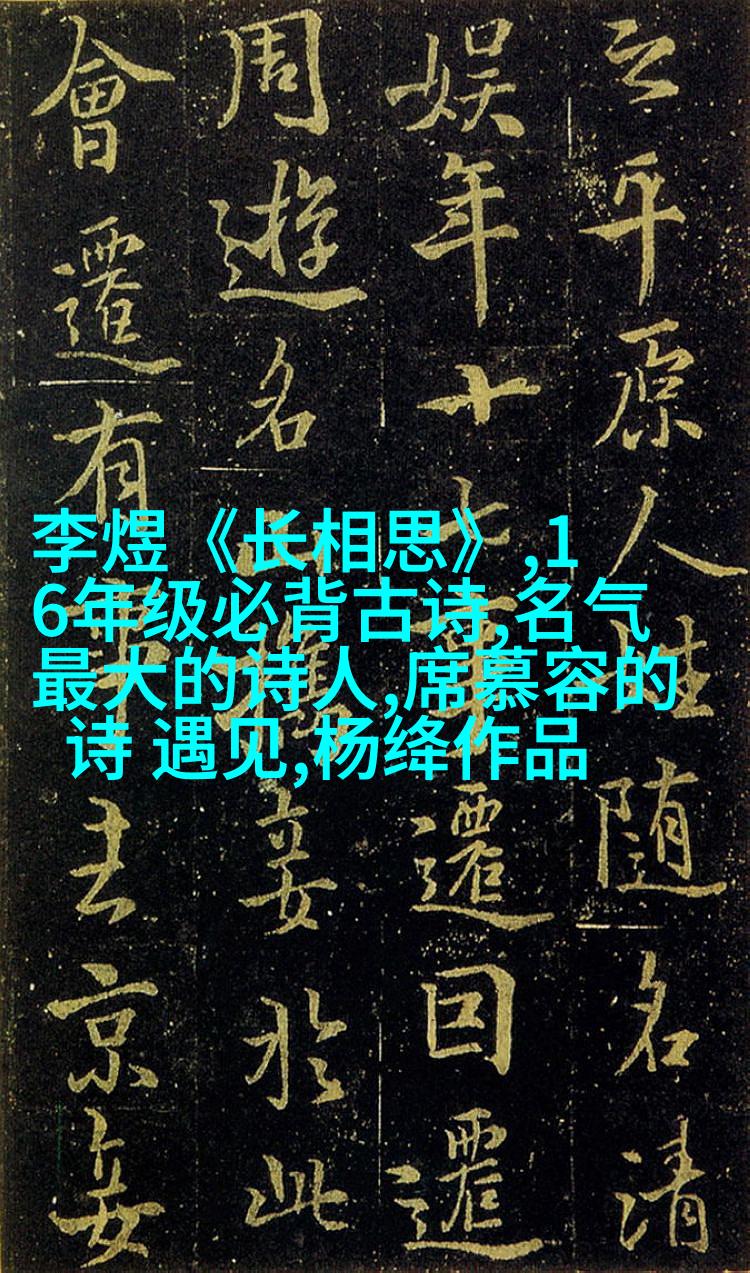 之平原人姓随名清
娱年十七事遷因遷
周遊名山攜妾於此
會遷有事去京妾
李煜《长相思》,1
6年级必背古诗,名气
最大的诗人,席慕容的
诗 遇见,杨绛作品